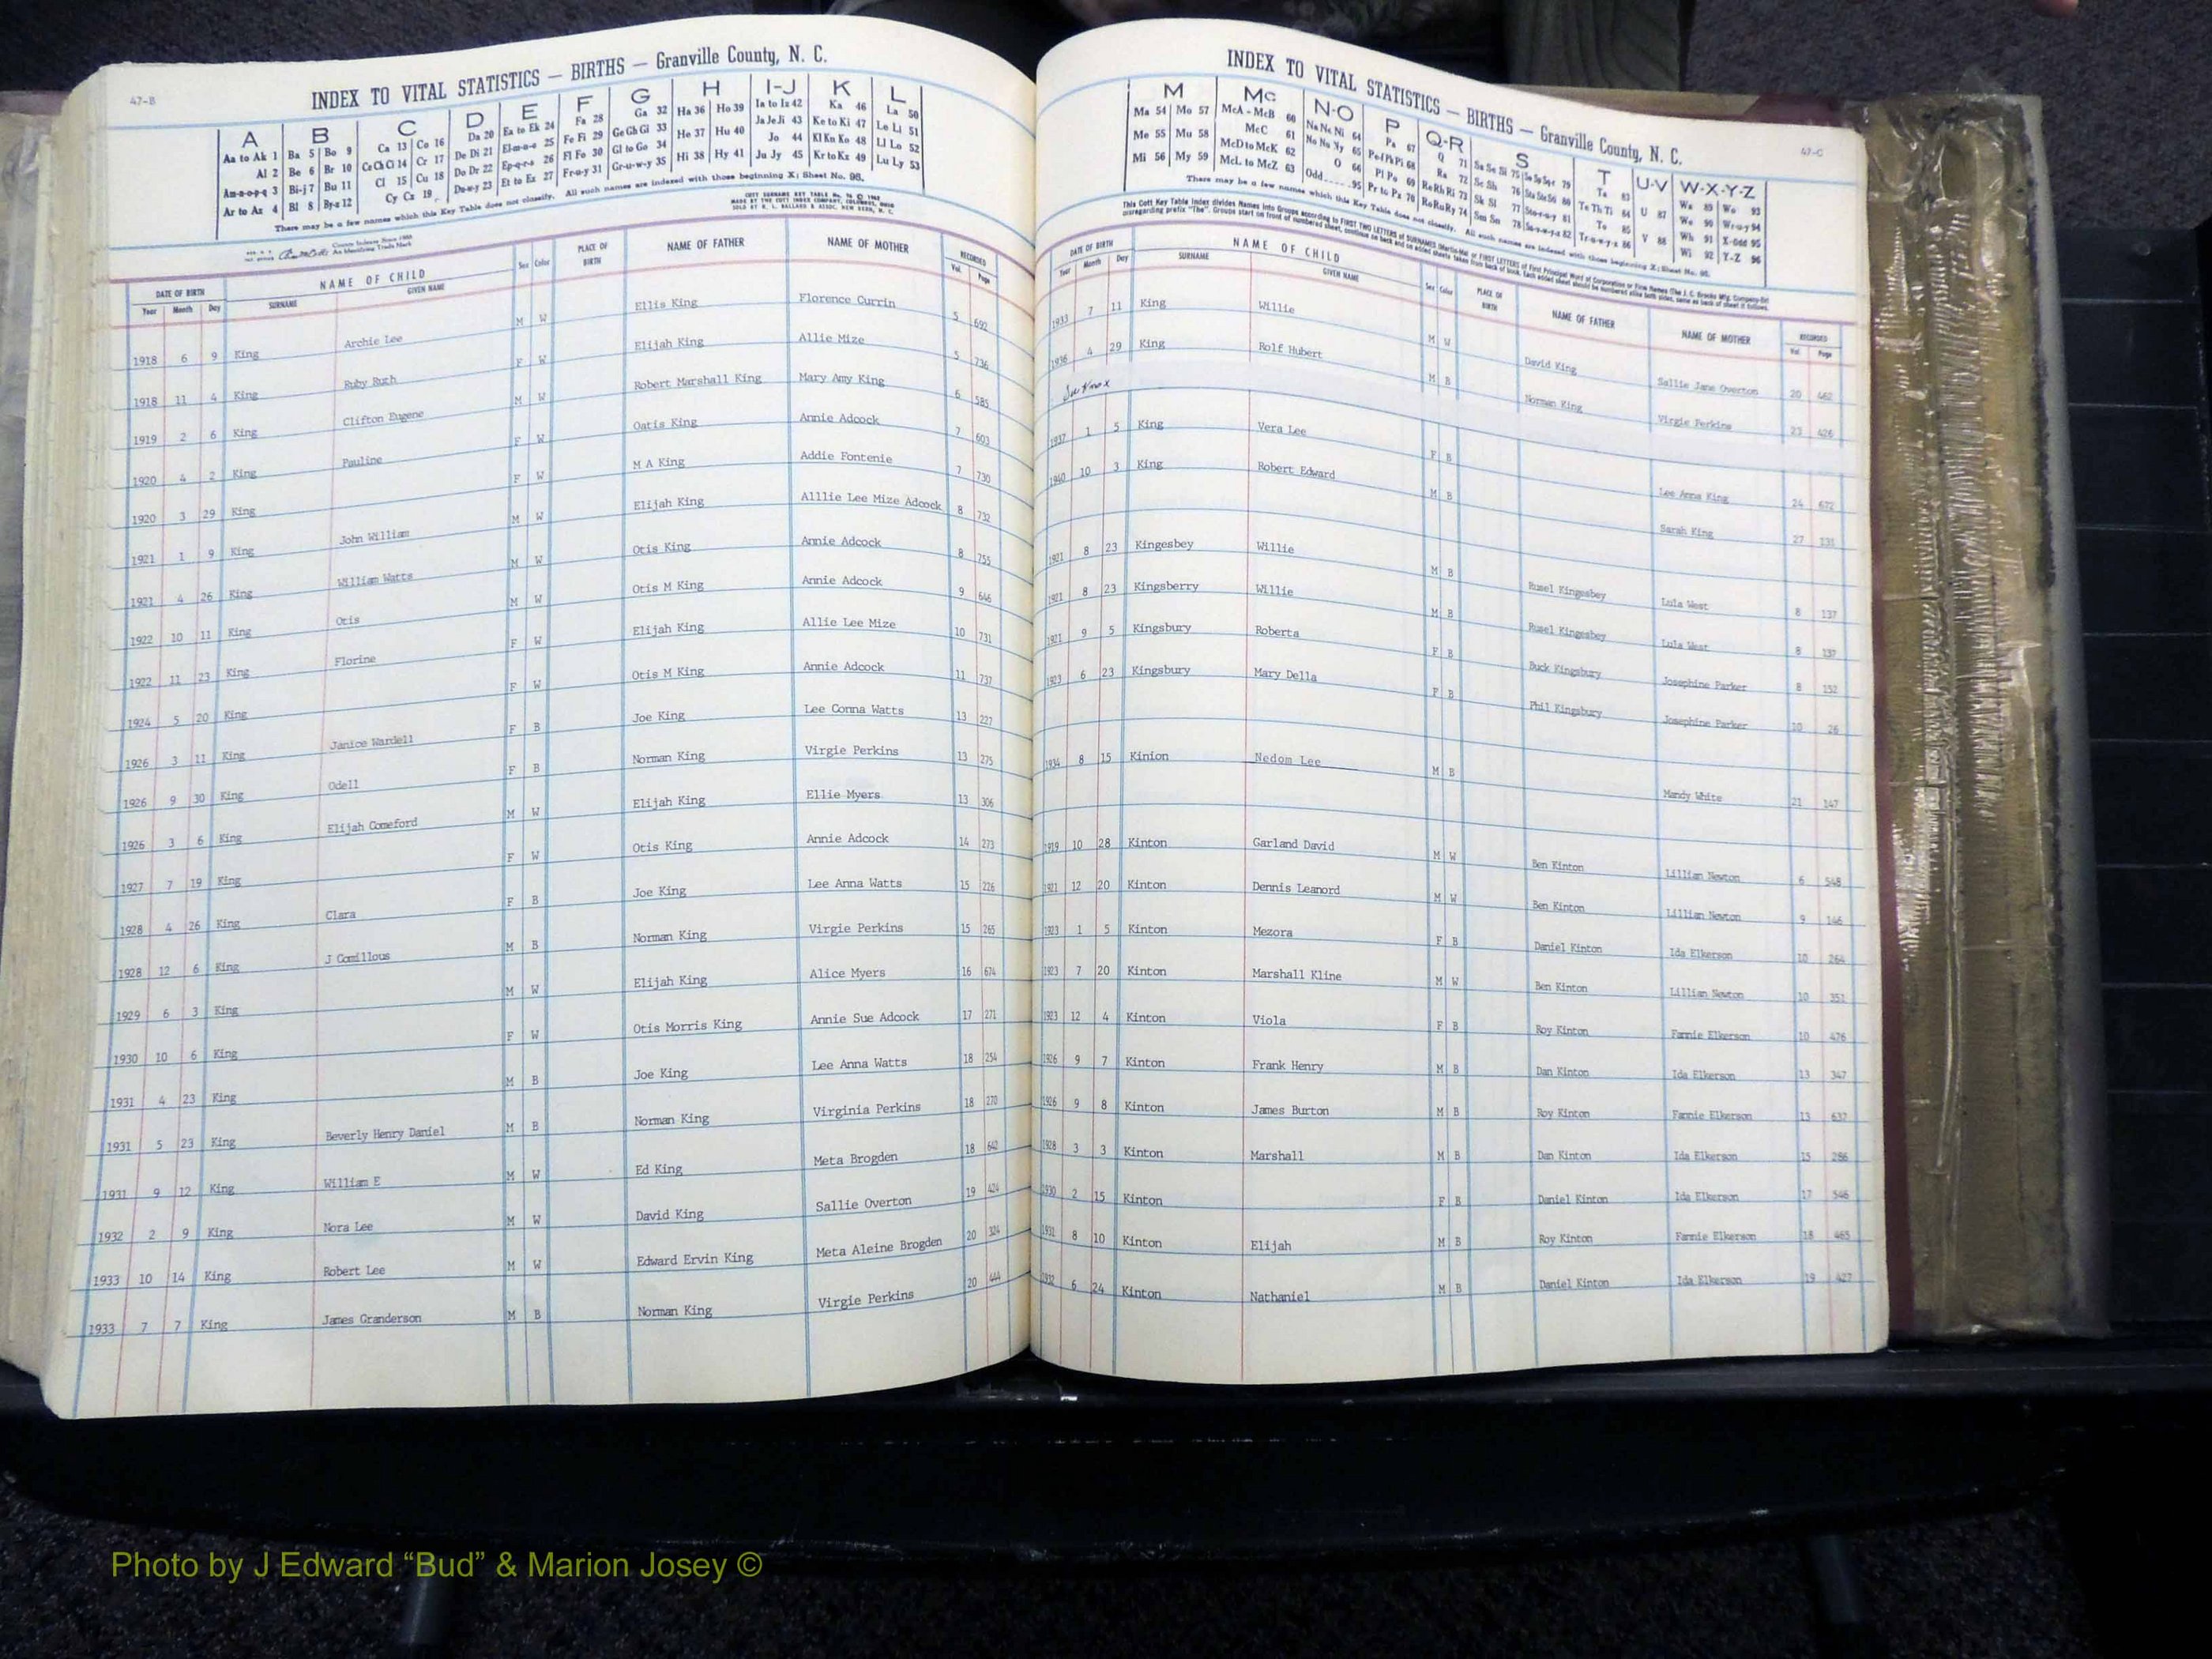 47-B
INDEX TO VITAL STATISTICS — BIRTHS — Granville County, N. C.
A B C D E F G H I-J K L
Aa to Ak 1 Ba 5 Bo 9 Ca 13 Co 16 Da 20 Ea to Ek 24 Fa 28 Ga 32 Ha 36 Ho 39 Ia to Iz 42 Ka 46 La 50
Al 2 Be 6 Br 10 Ce Ch Ci 14 Cr 17 De Di 21 El-m-n-o 25 Fe Fi 29 Ge Gh Gi 33 He 37 Hu 40 Ja Je Ji 43 Ke to Ki 47 Le Li 51
Am-n-o-p-q 3 Bi-j 7 Bu 11 Cl 15 Cu 18 Do Dr 22 Ep-q-r-s 26 Fl Fo 30 Gl to Go 34 Hi 38 Hy 41 Jo 44 Kl Kn Ko 48 Ll Lo 52
Ar to Az 4 Bl 8 By-z 12 Cy Cz 19 Du-w-y 23 Et to Ez 27 Fr-u-y 31 Gr-u-w-y 35 Ju Jy 45 Kr to Kz 49 Lu Ly 53
There may be a few names which this Key Table does not classify. All such names are indexed with those beginning X; Sheet No. 95.
DATE OF BIRTH NAME OF CHILD Sex Color PLACE OF BIRTH NAME OF FATHER NAME OF MOTHER RECORDED
Year Month Day SURNAME GIVEN NAME Vol. Page
1918 6 9 King Archie Lee M W Ellis King Florence Currin 5 692
1918 11 4 King Ruby Ruth F W Elijah King Allie Mize 5 736
1919 2 6 King Clifton Eugene M W Robert Marshall King Mary Amy King 6 585
1920 4 2 King Pauline F W Oatis King Annie Adcock 7 603
1920 3 29 King F W M A King Addie Fontenie 7 730
1921 1 9 King John William M W Elijah King Alllie Lee Mize Adcock 8 732
1921 4 26 King William Watts M W Otis King Annie Adcock 8 755
1922 10 11 King Otis M W Otis M King Annie Adcock 9 646
1922 11 23 King Florine F W Elijah King Allie Lee Mize 10 731
1924 5 20 King F W Otis M King Annie Adcock 11 737
1926 3 11 King Janice Wardell F B Joe King Lee Conna Watts 13 227
1926 9 30 King Odell F B Norman King Virgie Perkins 13 275
1926 3 6 King Elijah Comeford M W Elijah King Ellie Myers 13 306
1927 7 19 King F W Otis King Annie Adcock 14 273
1928 4 26 King Clara F B Joe King Lee Anna Watts 15 226
1928 12 6 King J Comillous M B Norman King Virgie Perkins 15 265
1929 6 3 King M W Elijah King Alice Myers 16 674
1930 10 6 King F W Otis Morris King Annie Sue Adcock 17 271
1931 4 23 King M B Joe King Lee Anna Watts 18 254
1931 5 23 King Beverly Henry Daniel M B Norman King Virginia Perkins 18 270
1931 9 12 King William E M W Ed King Meta Brogden 18 642
1932 2 9 King Nora Lee M W David King Sallie Overton 19 424
1933 10 14 King Robert Lee M W Edward Ervin King Meta Aleine Brogden 20 324
1933 7 7 King James Granderson M B Norman King Virgie Perkins 20 444
47-C
INDEX TO VITAL STATISTICS — BIRTHS — Granville County, N. C.
M Mc N-O P Q-R S T U-V W-X-Y-Z
Ma 54 Mo 57 McA - McB 60 Na Ne Ni 64 Pa 67 Q 71 Sa Se Si 75 Ta 83 U 87 Wa 89 Wo 93
Me 55 Mu 58 McC 61 No Nu Ny 65 Pe-f Ph Pi 68 Ra 72 Sc Sh 76 Te Th Ti 84 V 88 We 90 Wr-u-y 94
Mi 56 My 59 McD to McK 62 O 66 Pl Po 69 Re Rh Ri 73 Sk Sl 77 To 85 Wh 91 X-Odd 95
McL to McZ 63 Odd 95 Pr to Pz 70 Ro Ru Ry 74 Sm Sn 78 Tr-u-w-y-z 86 Wi 92 Y-Z 96
There may be a few names which this Key Table does not classify. All such names are indexed with those beginning X; Sheet No. 95.
DATE OF BIRTH NAME OF CHILD Sex Color PLACE OF BIRTH NAME OF FATHER NAME OF MOTHER RECORDED
Year Month Day SURNAME GIVEN NAME Vol. Page
1933 7 11 King Willie M W David King Sallie Jane Overton 20 462
1936 4 29 King Rolf Hubert M B Norman King Virgie Perkins 23 426
1937 1 5 King Vera Lee F B Lee Anna King 24 672
1940 10 3 King Robert Edward M B Sarah King 27 131
1921 8 23 Kingesbey Willie M B Rusel Kingesbey Lula West 8 137
1921 8 23 Kingsberry Willie M B Rusel Kingesbey Lula West 8 137
1921 9 5 Kingsbury Roberta F B Buck Kingsbury Josephine Parker 8 152
1923 6 23 Kingsbury Mary Della F B Phil Kingsbury Josephine Parker 10 26
1934 8 15 Kinion Nedom Lee M B Mandy White 21 147
1919 10 28 Kinton Garland David M W Ben Kinton Lillian Newton 6 548
1921 12 20 Kinton Dennis Leanord M W Ben Kinton Lillian Newton 9 146
1923 1 5 Kinton Mezora F B Daniel Kinton Ida Elkerson 10 264
1923 7 20 Kinton Marshall Kline M W Ben Kinton Lillian Newton 10 351
1923 12 4 Kinton Viola F B Roy Kinton Fannie Elkerson 10 476
1926 9 7 Kinton Frank Henry M B Dan Kinton Ida Elkerson 13 347
1926 9 8 Kinton James Burton M B Roy Kinton Fannie Elkerson 13 632
1928 3 3 Kinton Marshall M B Dan Kinton Ida Elkerson 15 286
1930 2 15 Kinton F B Daniel Kinton Ida Elkerson 17 546
1931 8 10 Kinton Elijah M B Roy Kinton Fannie Elkerson 18 465
1932 6 24 Kinton Nathaniel M B Daniel Kinton Ida Elkerson 19 427
Photo by J Edward “Bud” & Marion Josey ©